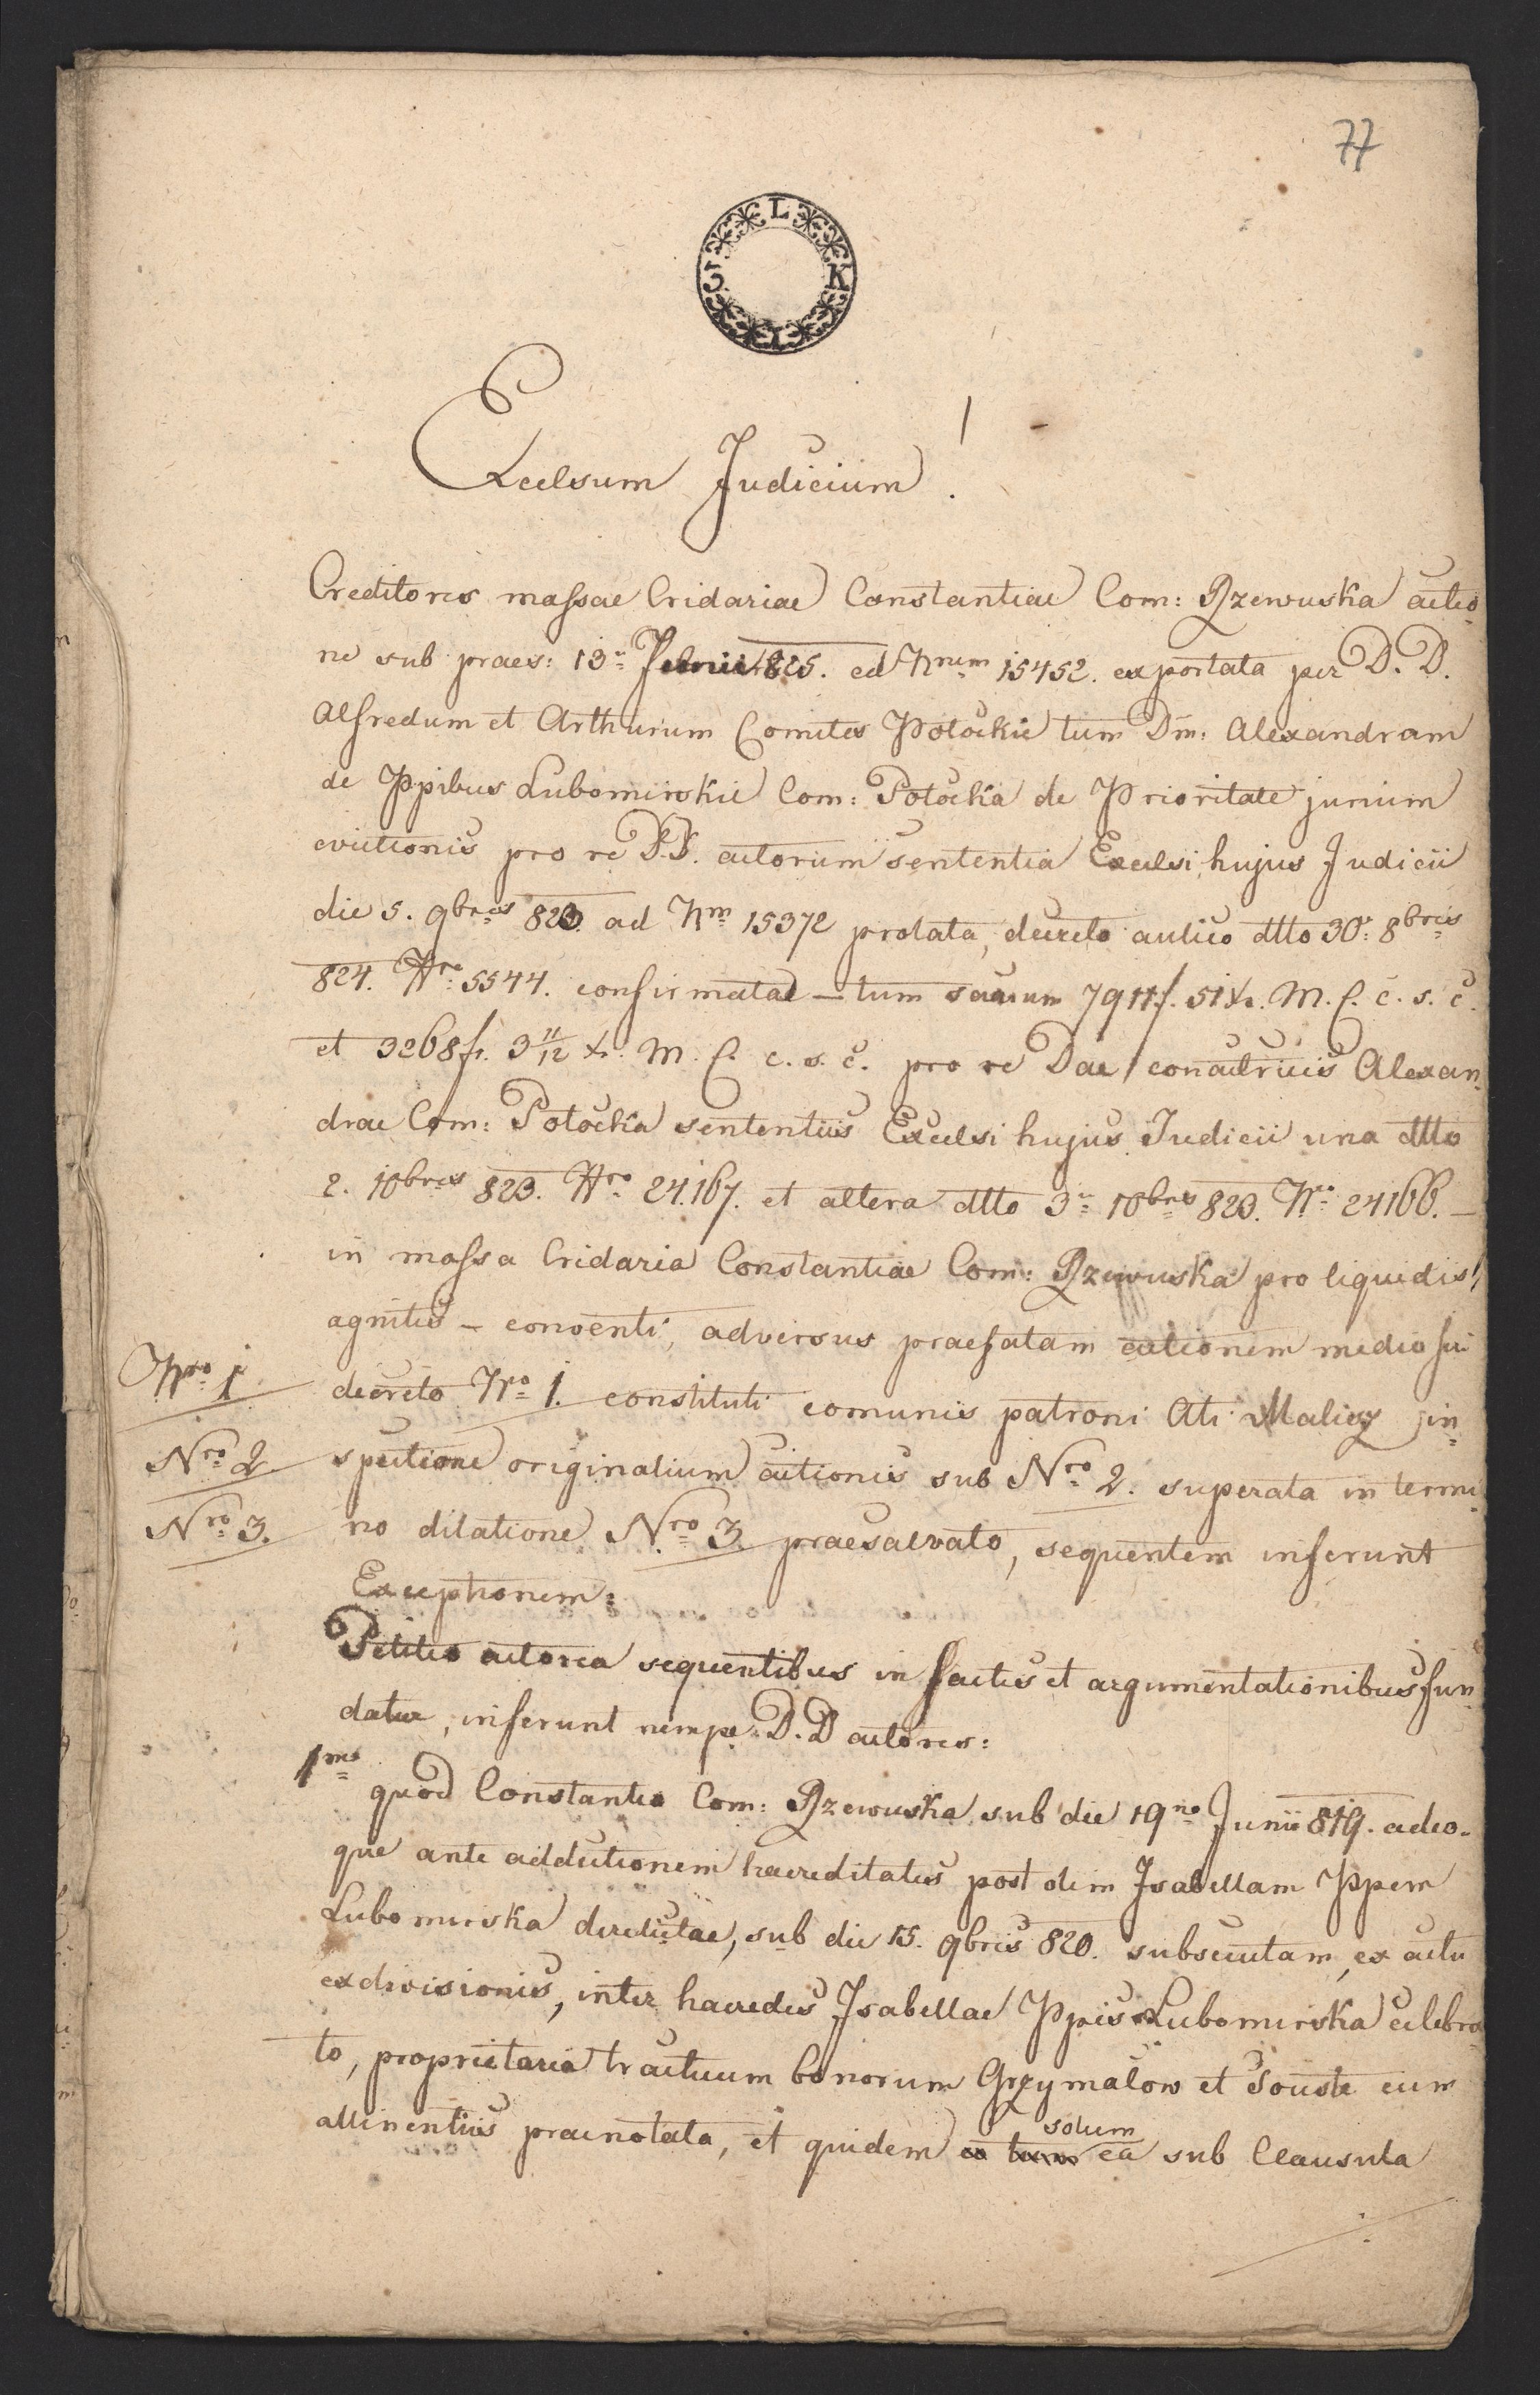 77
L
3 K
Excelsum Judicium!
Creditores massae Cridariae Constantiae Com: Rzewuska actio
ne sub praes: 13= 825. ad Nrum 15452. exportata per D. D.
Alfredum et Arthurum Comites Potockie tum Dm: Alexandram
de Ppibus Lubomirskie Com: Potocka de Prioritate jurium
evictionis pro re D.D. actorum sententia Excelsi hujus Judicii
die 5. 9bris 823. ad Nm 15372 prolata, decreto aulico dtto 30: 8bris
824. Nro 5544. confirmatae – tum summ 7911 f. 51 Xr. M. C. c. s. c.
et 3268 fr. 3 11/12 Xr. M. C. c. s. c. pro re Dae conactricis Alexan
drae Com: Potocka sententiis Excelsi hujus Judicii una dtto
2. 10bris 823. Nro 24.167. et altera dtto 3= 10bris 823. Nro 24166. –
in massa Cridaria Constantiae Com: Rzewuska pro liquidis
agnitis – conventi, adversus praefatam actionem medio sui
Nro 1. decreto Nro 1. constituti comunis patroni Ati Malicz in=
Nro 2. spectione originalium actionis sub Nro 2. superata in termi
Nro 3. no dilatione Nro 3. praesalvato, sequentem inferunt
Exceptionem:
Petitio actorea sequentibus in factis et argumentationibus fun
datur, inferunt nempe D. D actores:
1mo quod Constantia Com: Rzewuska sub die 19no Junii 819. adeo-
que ante addictionem haereditatis post olim Isabellam Ppem
Lubomirska derelictae, sub die 15. 9bris 820. subsecutam, ex actu
exdivisionis, inter haeredes Isabellae Ppis Lubomirska celebra
to, proprietaria tractuum bonorum Grzymalow et Touste cum
attinentiis praenotata, et quidem solum ea sub Clausula